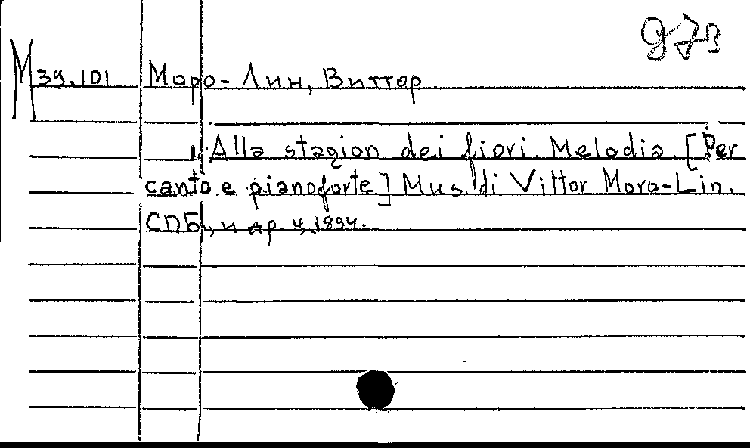 973
М 34.101 Маро-Лин, Виттор
1. Alla stagion dei fiori. Melodia. [Per
canto e pianoforte] Mus. di Vittor Maro-Lin.
СПБ., и др. 1894.